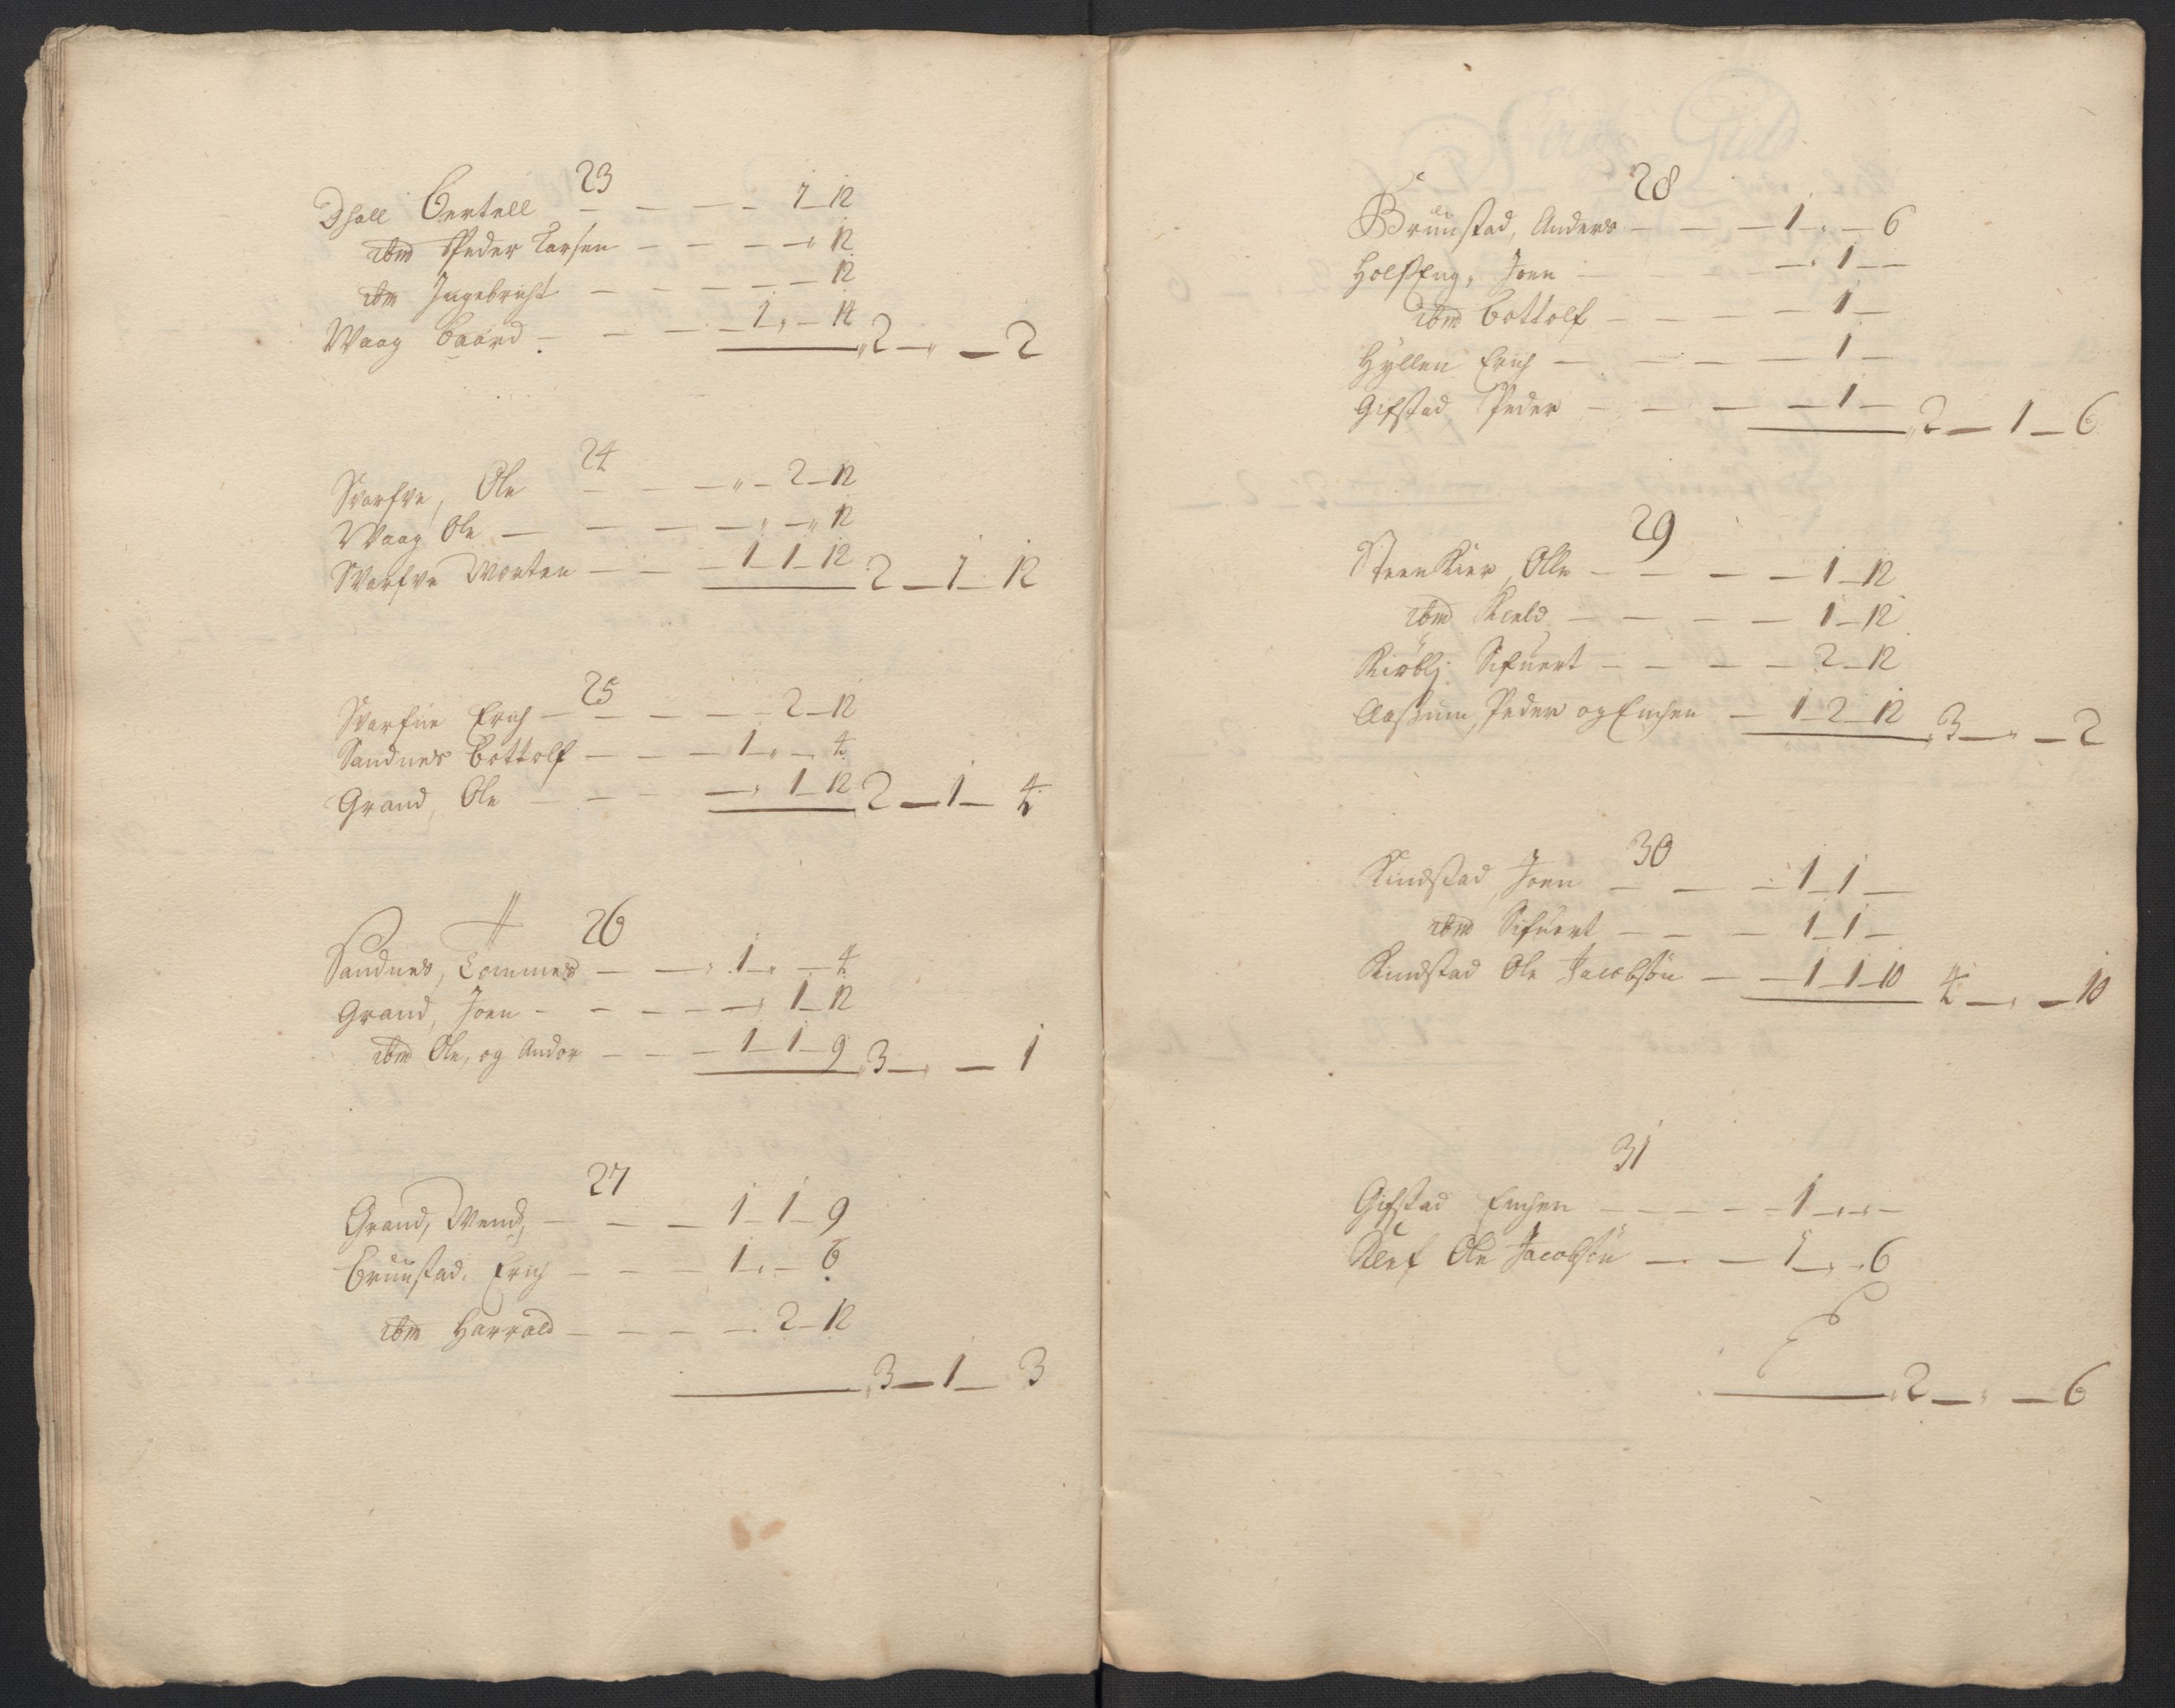 23
Dhall Bertell — — — — 1 — 12
ibm Peder Larsen — — — — " 12
ibm Ingebricht — — — — — 12
Waag Baard — — — — 1 " — 14
2 — " — 2
24
Warfve, Ole — — — " — 2 — 12
Waag Ole — — — — " — " 12
Warfve Morten — — — 1 — 1 — 12
2 — 1 — 12
25
Warfue Erich — — — — 2 — 12
Sandnes Bottolf — — — 1 " — 4
Grand, Ole — — — — " 1 — 12
2 — 1 — 4
26
Sandnes, Tommes — — " 1 " — 4
Grand, Joen — — — — — " 1 — 12
ibm Ole, og Andor — — — 1 — 1 — 9
3 — " — 1
27
Grand, — — — 1 — 1 — 9
Brunstad, Erich — — — 1 " — 6
ibm Harrald — — — — 2 — 12
3 — 1 — 3
28
Brunstad, Anders — — — 1 " — 6
Holsseng, Joen — — — — " 1 —
ibm Bottolf — — — — 1 —
Hyllen Erich — — — — 1 —
Gifstad Peder — — — — 1 —
2 — 1 — 6
29
Steenkier, Olle — — — — 1 — 12
ibm Kield — — — — 1 — 12
Kirkbÿ Sifuert — — — — 2 — 12
Aassum, Peder og Enchen — 1 — 2 — 12
3 — " — 2
30
Kindstad, Joen — — — 1 — 1 —
ibm Sifuert — — — 1 — 1 —
Kindstad Ole Jacobsøn — — 1 — 1 — 10
4 — " — 10
31
Gifstad Enchen — — — — — 1 — " " —
Klef Ole Jacobsøn — — 1 — " — 6
2 — " — 6